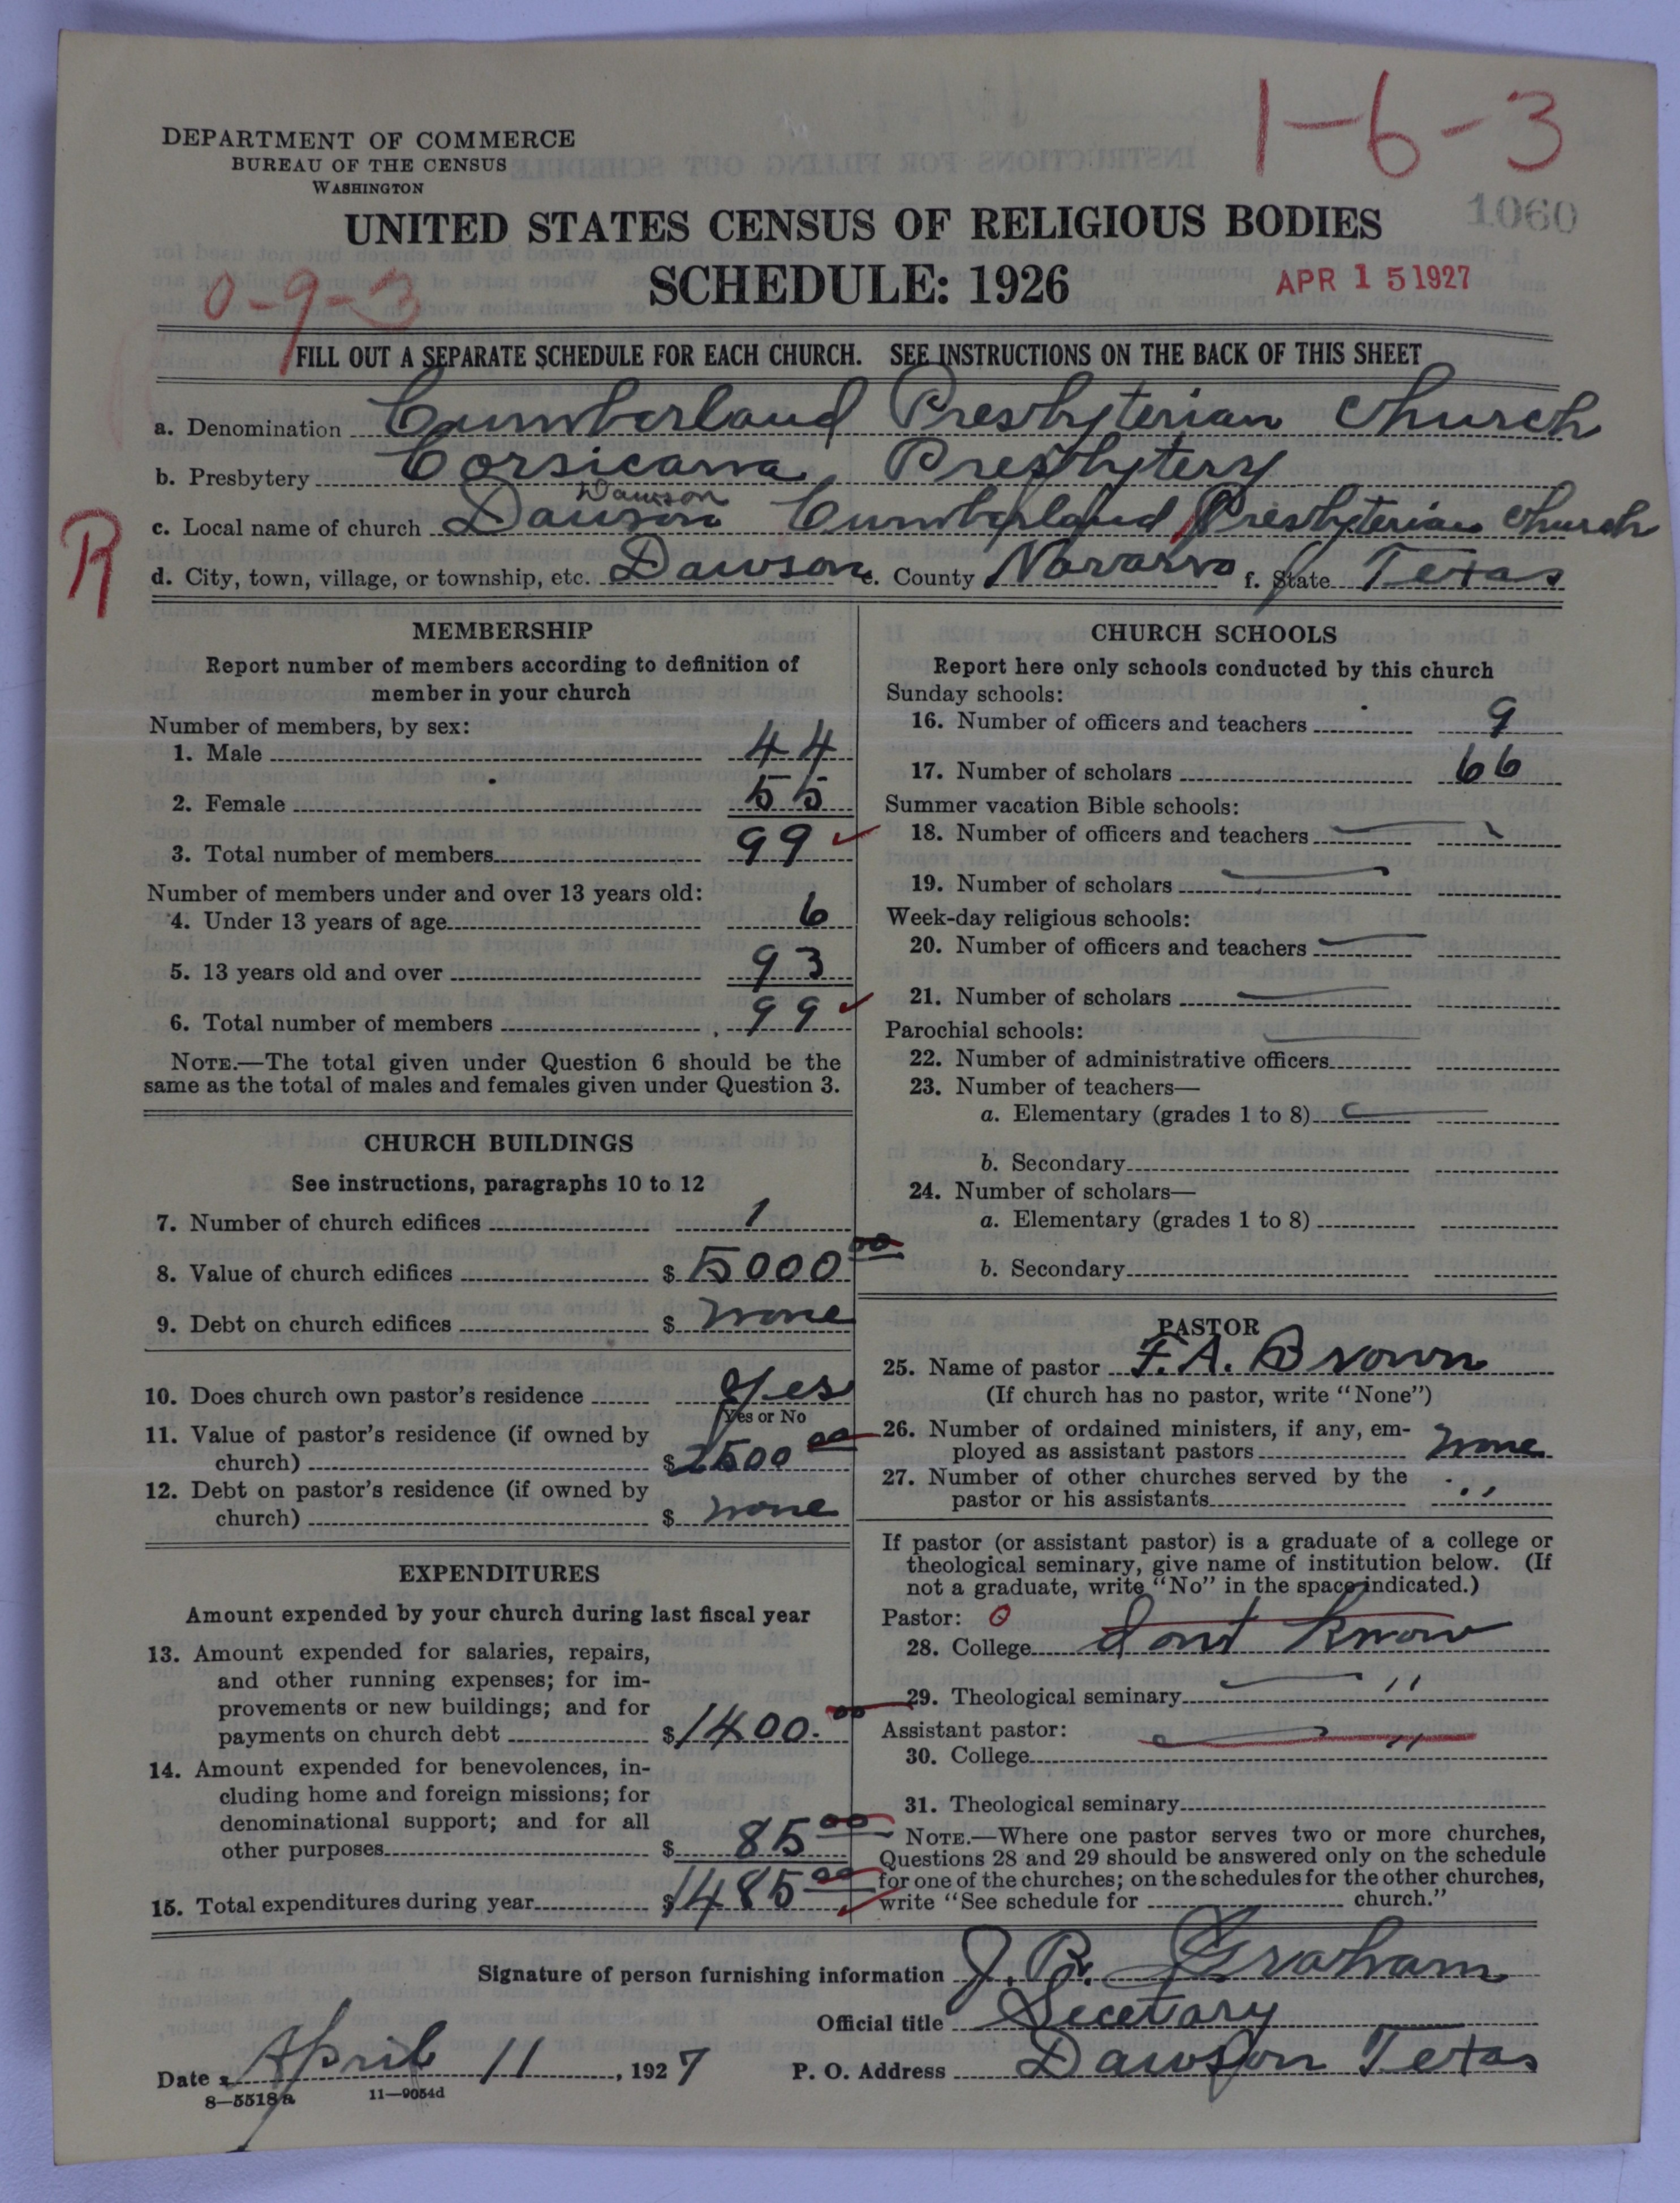 1-6-3
DEPARTMENT OF COMMERCE
BUREAU OF THE CENSUS
WASHINGTON
1060
UNITED STATES CENSUS OF RELIGIOUS BODIES
SCHEDULE: 1926
APR 15 1927
0-9-3
FILL OUT A SEPARATE SCHEDULE FOR EACH CHURCH. SEE INSTRUCTIONS ON THE BACK OF THIS SHEET
a. Denomination Cumberland Presbyterian Church
b. Presbytery Corsicana Presbytery
Dawson
c. Local name of church Dawson Cumberland Presbyterian Church
R
d. City, town, village, or township, etc. Dawson e. County Navarro f. State Texas
MEMBERSHIP
Report number of members according to definition of
member in your church
Number of members, by sex:
1. Male 44
2. Female 55
3. Total number of members 99
Number of members under and over 13 years old:
4. Under 13 years of age 6
5. 13 years old and over 93
6. Total number of members 99
NOTE.—The total given under Question 6 should be the
same as the total of males and females given under Question 3.
CHURCH BUILDINGS
See instructions, paragraphs 10 to 12
7. Number of church edifices 1
8. Value of church edifices $ 5000 00
9. Debt on church edifices $ none
10. Does church own pastor's residence yes
Yes or No
11. Value of pastor's residence (if owned by
church) $ 2500 00
12. Debt on pastor's residence (if owned by
church) $ none
EXPENDITURES
Amount expended by your church during last fiscal year
13. Amount expended for salaries, repairs,
and other running expenses; for im-
provements or new buildings; and for
payments on church debt $ 1400.00
14. Amount expended for benevolences, in-
cluding home and foreign missions; for
denominational support; and for all
other purposes $ 85 00
15. Total expenditures during year $ 1485 00
CHURCH SCHOOLS
Report here only schools conducted by this church
Sunday schools:
16. Number of officers and teachers 9
17. Number of scholars 66
Summer vacation Bible schools:
18. Number of officers and teachers
19. Number of scholars
Week-day religious schools:
20. Number of officers and teachers
21. Number of scholars
Parochial schools:
22. Number of administrative officers
23. Number of teachers—
a. Elementary (grades 1 to 8)
b. Secondary
24. Number of scholars—
a. Elementary (grades 1 to 8)
b. Secondary
PASTOR
25. Name of pastor F. A. Brown
(If church has no pastor, write "None")
26. Number of ordained ministers, if any, em-
ployed as assistant pastors none
27. Number of other churches served by the
pastor or his assistants "
If pastor (or assistant pastor) is a graduate of a college or
theological seminary, give name of institution below. (If
not a graduate, write "No" in the space indicated.)
Pastor: 0
28. College dont know
29. Theological seminary "
Assistant pastor:
30. College "
31. Theological seminary
NOTE.—Where one pastor serves two or more churches,
Questions 28 and 29 should be answered only on the schedule
for one of the churches; on the schedules for the other churches,
write "See schedule for church."
Signature of person furnishing information J. R. Graham
Official title Secetary
Date April 11, 1927 P. O. Address Dawson Texas
8—5518a 11—9054d